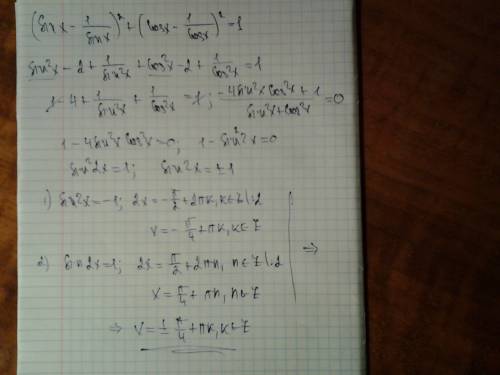 (sin x - 1/sin x)² + (cos x - 1/cos x)² = 1
sin²x - 2 + 1/sin²x + cos²x - 2 + 1/cos²x = 1
1 - 4 + 1/sin²x + 1/cos²x = 1; (-4sin²x cos²x + 1)/(sin²x + cos²x) = 0
1 - 4sin²x cos²x = 0, 1 - sin²2x = 0
sin²2x = 1; sin 2x = ±1
1) sin 2x = -1; 2x = -π/2 + 2πk, k∈Z |:2
x = -π/4 + πk, k∈Z
2) sin 2x = 1; 2x = π/2 + 2πn, n∈Z |:2
x = π/4 + πn, n∈Z
⇒
⇒ x = ±π/4 + πk, k∈Z